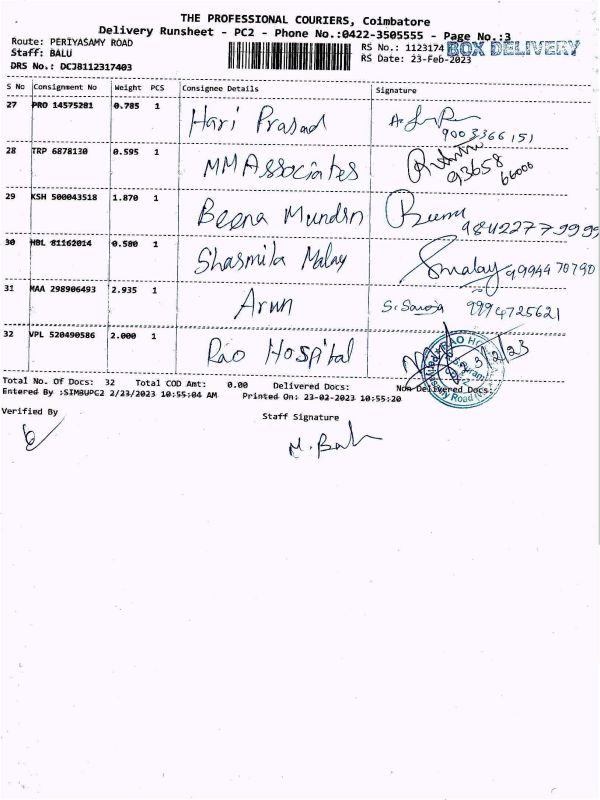 THE PROFESSIONAL COURIERS, Coimbatore
Delivery Runsheet - PC2 - Phone No.:0422-3505555 - Page No.:3
Route: PERIYASAMY ROAD RS No.: 1123174 BOX DELIVERY
Staff: BALU RS Date: 23-Feb-2023
DRS No.: DCJB112317403
S No Consignment No Weight PCS Consignee Details Signature
27 PRO 14575281 0.785 1 Hari Prasad 9003366151
28 TRP 6878130 0.595 1 MM Associates 93658 66000
29 KSH 500043518 1.870 1 Beena Mundin Beena 98422779999
30 HBL 81162014 0.580 1 Sharmila Malay Smalay 9994470790
31 MAA 298906493 2.935 1 Arun S. Saroja 9994725621
32 VPL 520490586 2.000 1 Rao Hospital
Total No. Of Docs: 32 Total COD Amt: 0.00 Delivered Docs: Non Delivered Docs:
Entered By :SIMBUPC2 2/23/2023 10:55:04 AM Printed On: 23-02-2023 10:55:20
Verified By Staff Signature
M. Bal